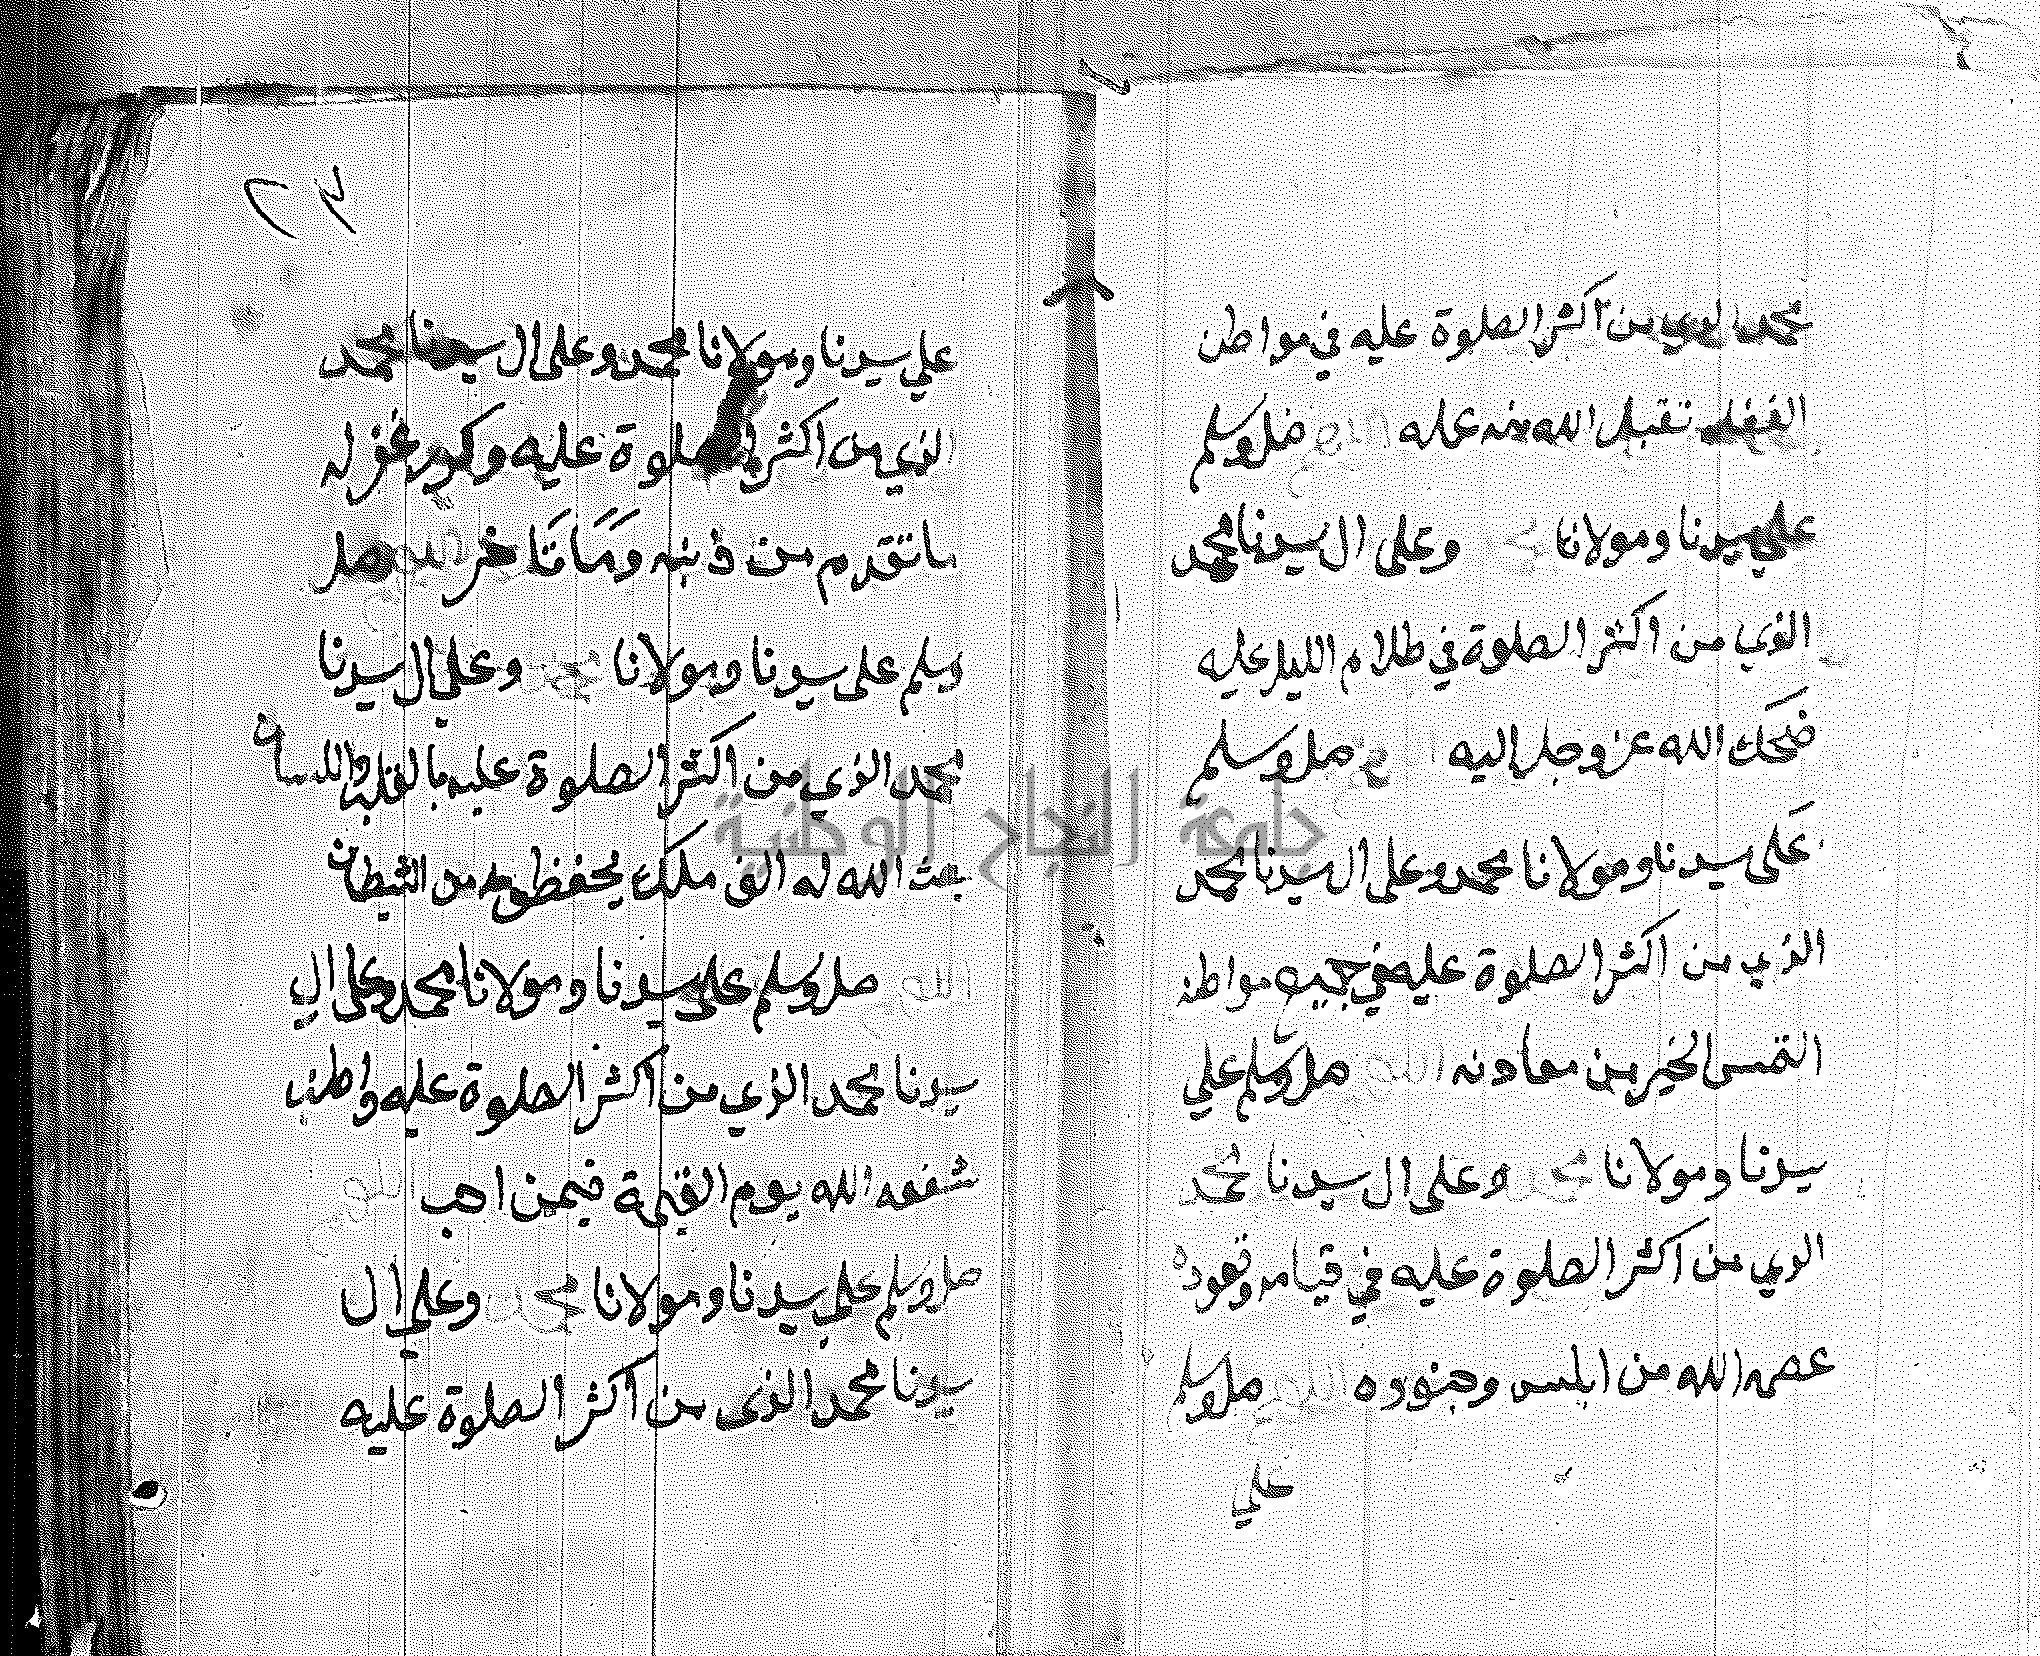 محمد الذي من اكثر الصلوة عليه في مواطن
الغفلة تقبل الله منه عمله اللهم صل وسلم
علي سيدنا ومولانا محمد وعلى ال سيدنا محمد
الذي من اكثر الصلوة في ظلام الليل عليه
ضحك الله عز وجل اليه اللهم صل وسلم
على سيدنا ومولانا محمد وعلى ال سيدنا محمد
الذي من اكثر الصلوة عليه في جميع مواطنه
التمس الخير من معادنه اللهم صل وسلم علي
سيدنا ومولانا محمد وعلى ال سيدنا محمد
الذي من اكثر الصلوة عليه في قيامه وقعوده
عصمه الله من ابليس وجنوده اللهم صل وسلم
علي
٢٣
علي سيدنا ومولانا محمد وعلى ال سيدنا محمد
الذي من اكثر الصلوة عليه وكرر غفر له
ما تقدم من ذنبه وما تاخر اللهم صل
وسلم على سيدنا ومولانا محمد وعلي ال سيدنا
محمد الذي من اكثر الصلوة عليه بالقلب واللسان
بعث الله له الف ملك يحفظونه من الشيطان
اللهم صل وسلم على سيدنا ومولانا محمد وعلى ال
سيدنا محمد الذي من اكثر الصلوة عليه واطنب
شفعه الله يوم القيمة فيمن احب اللهم
صل وسلم علي سيدنا ومولانا محمد وعلي ال
سيدنا محمد الذي من اكثر الصلوة عليه
جامعة النجاح الوطنية